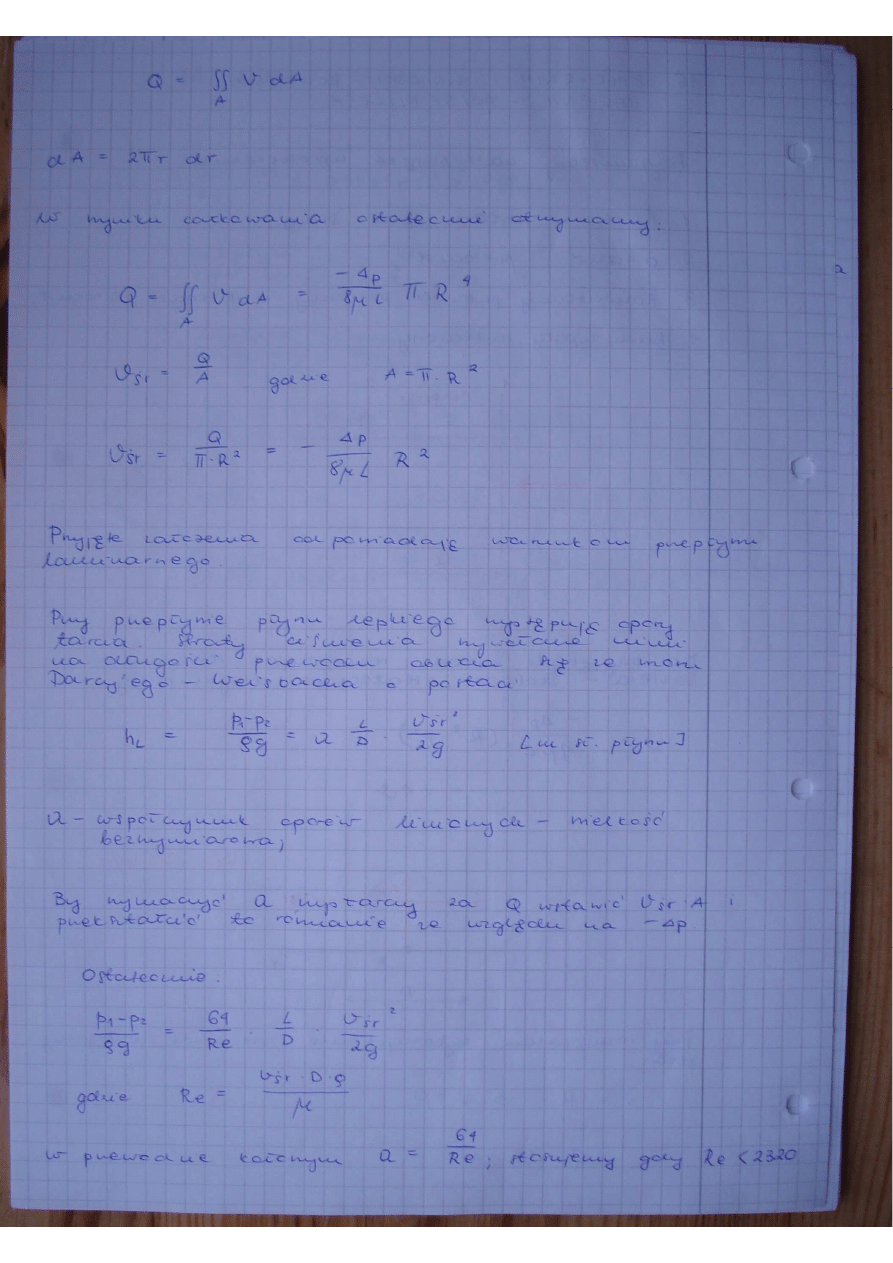 Q = ∬_A v dA
dA = 2πr dr
W wyniku całkowania ostatecznie otrzymamy:
Q = ∬_A v dA = -Δp/8μL π R⁴
v_śr = Q/A gdzie A = π · R²
v_śr = Q/π·R² = - Δp/8μL R²
Przyjęte założenia odpowiadają warunkom przepływu
laminarnego.
Przy przepływie płynu lepkiego występują opory
tarcia. Straty ciśnienia wywołane nimi
na długości przewodu oblicza się ze wzoru
Darcy'ego - Weisbacha o postaci
h_L = p₁-p₂/ρg = λ L/D · v_śr²/2g [m sł. płynu]
λ - współczynnik oporów liniowych - wielkość
bezwymiarowa;
By wyznaczyć λ wystarczy za Q wstawić v_śr · A i
przekształcić to równanie ze względu na -Δp
Ostatecznie.
p₁-p₂/ρg = 64/Re · L/D · v_śr²/2g
gdzie Re = v_śr · D · ρ/μ
w przewodzie kołowym λ = 64/Re; stosujemy gdy Re < 2320